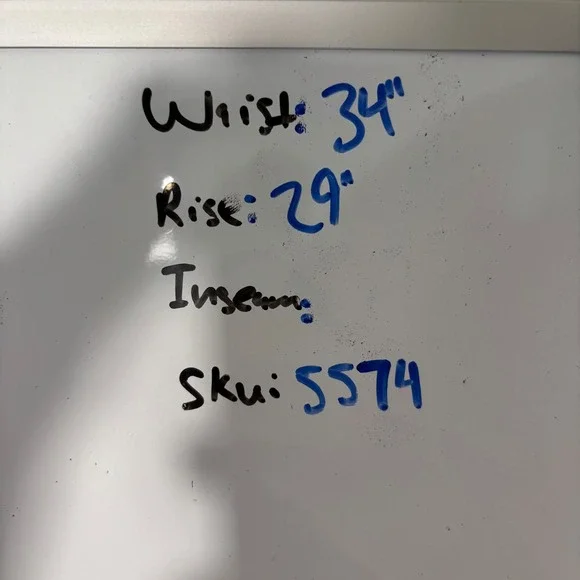 Waist: 34"
Rise: 29"
Inseam:
Sku: 5574